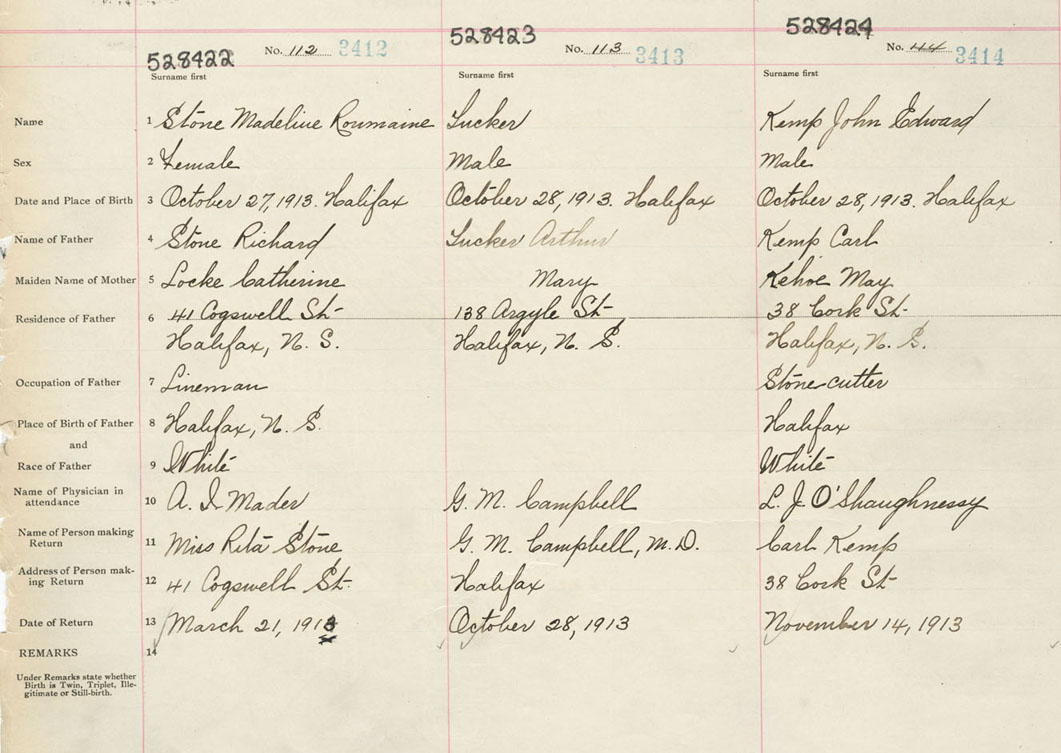 528422 No. 112 3412
528423 No. 113 3413
528424 No. 44 3414
Surname first Surname first Surname first
Name 1 Stone Madeline Roumaine Tucker Kemp John Edward
Sex 2 Female Male Male
Date and Place of Birth 3 October 27, 1913. Halifax October 28, 1913. Halifax October 28, 1913. Halifax
Name of Father 4 Stone Richard Tucker Arthur Kemp Carl
Maiden Name of Mother 5 Locke Catherine Mary Kehoe May
Residence of Father 6 41 Cogswell St- 138 Argyle St- 38 Cork St-
Halifax, N. S. Halifax, N. S. Halifax, N. S.
Occupation of Father 7 Lineman Stone-cutter
Place of Birth of Father 8 Halifax, N. S. Halifax
and
Race of Father 9 White White
Name of Physician in attendance 10 A. I. Mader G. M. Campbell L. J. O'Shaughnessy
Name of Person making Return 11 Miss Rita Stone G. M. Campbell, M.D. Carl Kemp
Address of Person mak-ing Return 12 41 Cogswell St- Halifax 38 Cork St-
Date of Return 13 March 21, 1913 October 28, 1913 November 14, 1913
REMARKS 14
Under Remarks state whether
Birth is Twin, Triplet, Ille-
gitimate or Still-birth.